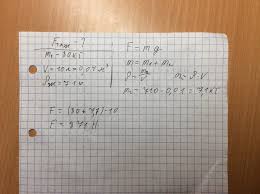 Fтяж - ?
m₁ = 80 кг
V = 10 л = 0,01 м³
ρбен = 710
F = mg
m = m₁ + m₂
ρ = m/V m = ρ · V
m₂ = 710 · 0,01 = 7,1 кг
F = (80+7,1)·10
F = 871 Н